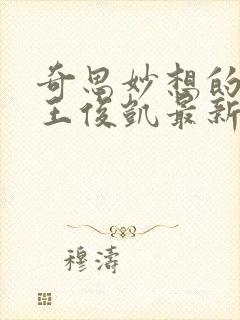 奇思妙想的
王俊凯最新
穆涛